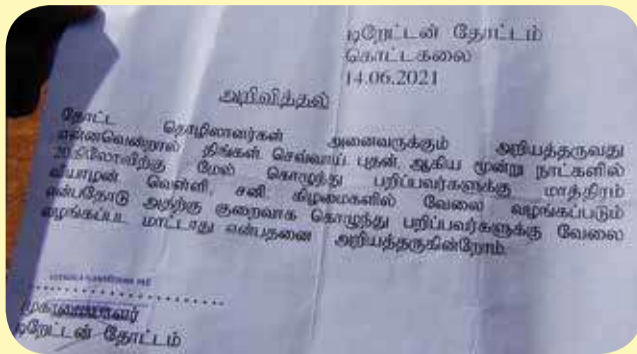 டிரேட்டன் தோட்டம்
கொட்டகலை
14.06.2021
அறிவித்தல்
தோட்ட தொழிலாளர்கள் அனைவருக்கும் அறியத்தருவது
என்னவென்றால் திங்கள் செவ்வாய் புதன் ஆகிய மூன்று நாட்களில்
20கிலோவிற்கு மேல் கொழுந்து பறிப்பவர்களுக்கு மாத்திரம்
வியாழன் வெள்ளி சனி கிழமைகளில் வேலை வழங்கப்படும்
என்பதோடு அதற்கு குறைவாக கொழுந்து பறிப்பவர்களுக்கு வேலை
வழங்கப்பட மாட்டாது என்பதனை அறியத்தருகின்றோம்.
முகாமையாளர்
டிரேட்டன் தோட்டம்